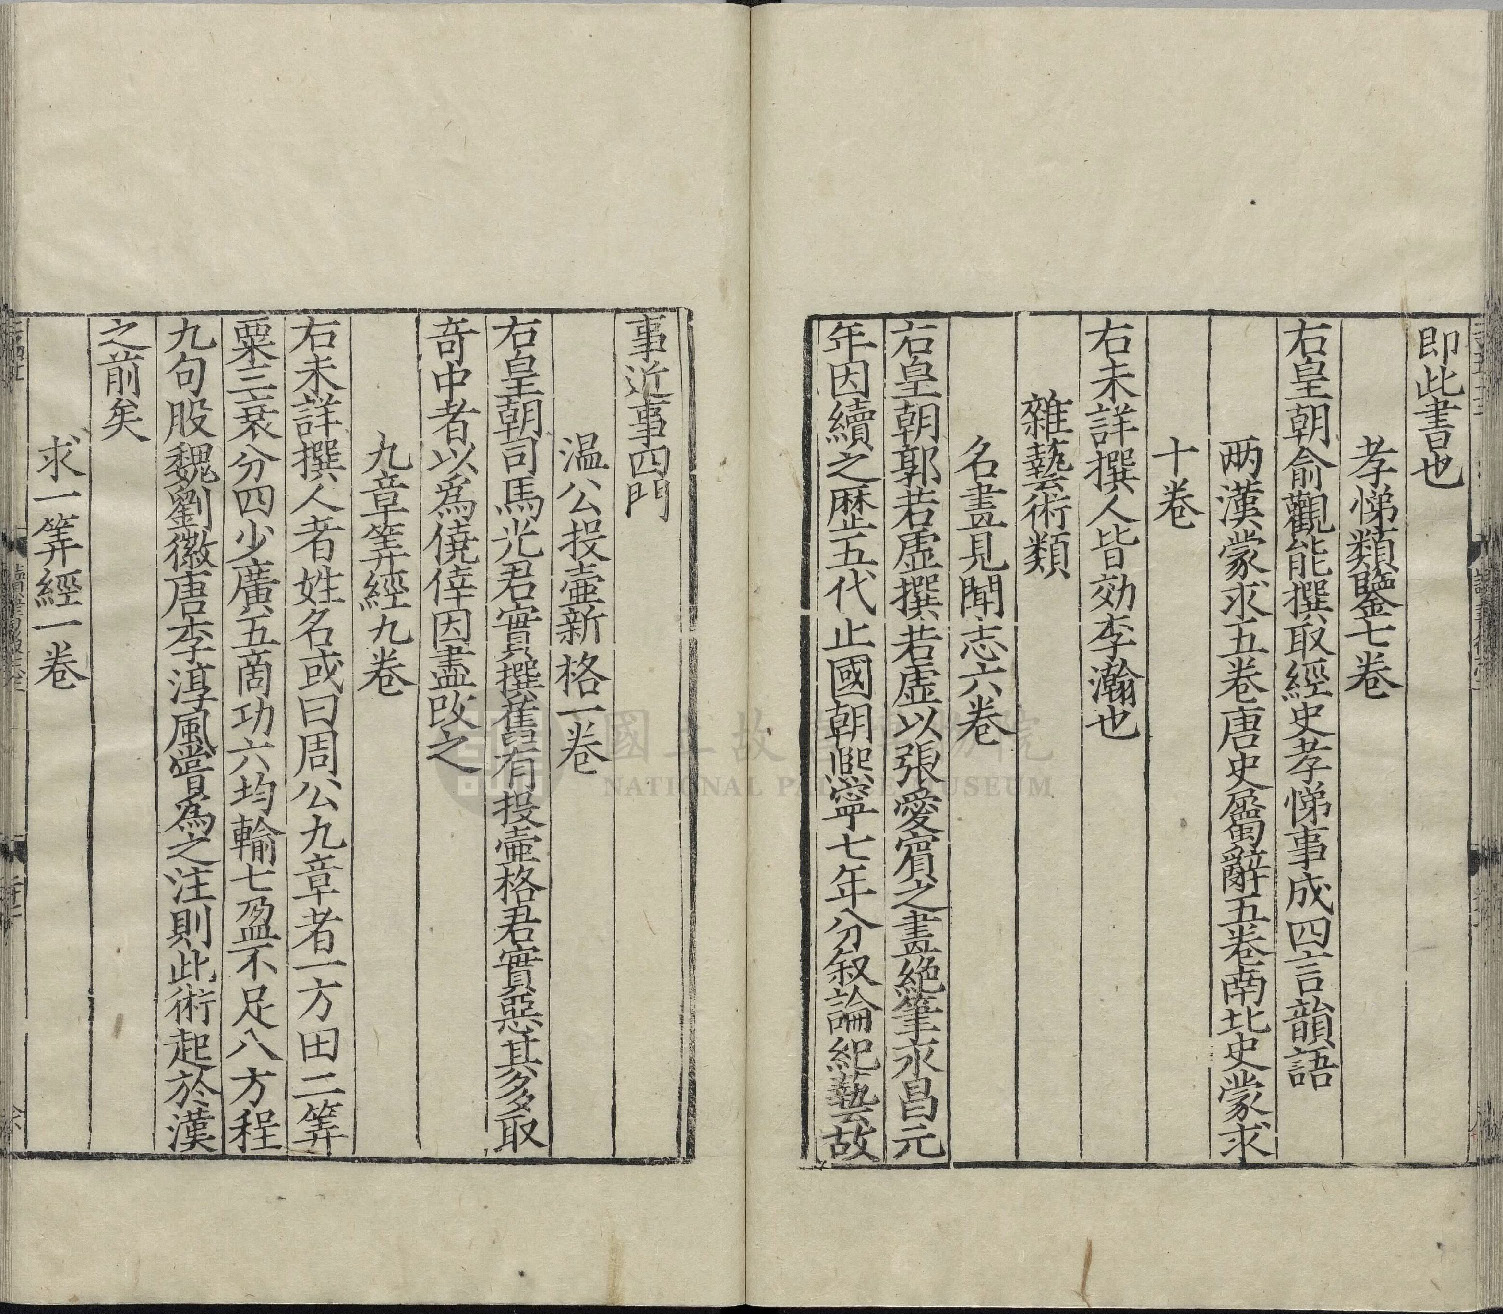 即此書也
孝悌類鑒七卷
右皇朝俞觀能撰取經史孝悌事成四言韻語
两漢蒙求五卷唐史屬辭五卷南北史蒙求
十卷
右未詳撰人皆効李瀚也
雜藝術類
名畫見聞志六卷
右皇朝郭若虛撰若虛以張愛賓之畫絕筆永昌元
年因續之歷五代止國朝熈寧七年分叙論紀藝故
事近事四門
温公投壷新格一卷
右皇朝司馬光君實撰舊有投壷格君實惡其多取
奇中者以爲僥倖因盡改之
九章筭經九卷
右未詳撰人者姓名或曰周公九章者一方田二筭
粟三衰分四少廣五商功六均輸七盈不足八方程
九句股魏劉徽唐李淳風嘗爲之注則此術起於漢
之前矣
求一筭經一卷
NATIONAL PALACE MUSEUM